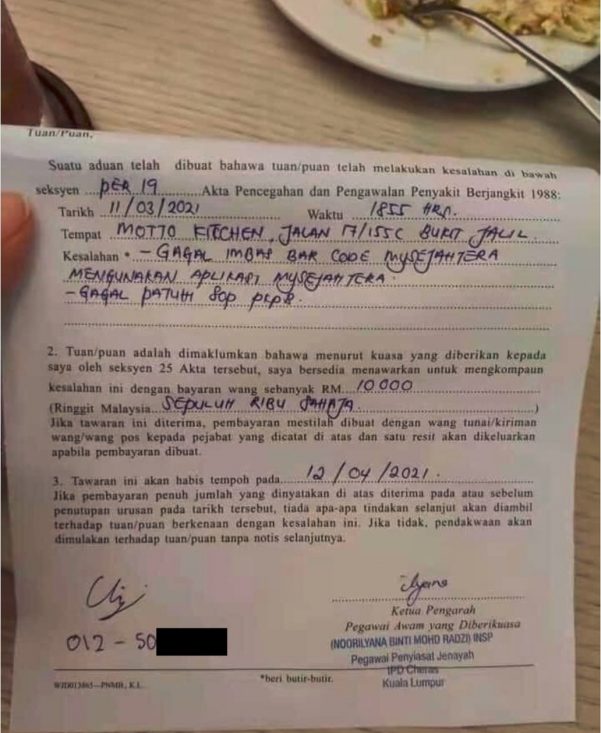 Tuan/Puan,
Suatu aduan telah dibuat bahawa tuan/puan telah melakukan kesalahan di bawah
seksyen PER 19 Akta Pencegahan dan Pengawalan Penyakit Berjangkit 1988:
Tarikh 11/03/2021 Waktu 1855 HRS.
Tempat MOTTO KITCHEN, JALAN 17/155C BUKIT JALIL.
Kesalahan * - GAGAL IMBAS BAR CODE MYSEJAHTERA
MENGUNAKAN APLIKASI MYSEJAHTERA.
- GAGAL PATUHI SOP PKPB.
2. Tuan/puan adalah dimaklumkan bahawa menurut kuasa yang diberikan kepada
saya oleh seksyen 25 Akta tersebut, saya bersedia menawarkan untuk mengkompaun
kesalahan ini dengan bayaran wang sebanyak RM. 10 000
(Ringgit Malaysia SEPULUH RIBU SAHAJA )
Jika tawaran ini diterima, pembayaran mestilah dibuat dengan wang tunai/kiriman
wang/wang pos kepada pejabat yang dicatat di atas dan satu resit akan dikeluarkan
apabila pembayaran dibuat.
3. Tawaran ini akan habis tempoh pada 12/04/2021.
Jika pembayaran penuh jumlah yang dinyatakan di atas diterima pada atau sebelum
penutupan urusan pada tarikh tersebut, tiada apa-apa tindakan selanjut akan diambil
terhadap tuan/puan berkenaan dengan kesalahan ini. Jika tidak, pendakwaan akan
dimulakan terhadap tuan/puan tanpa notis selanjutnya.
Ketua Pengarah
Pegawai Awam yang Diberikuasa
(NOORILYANA BINTI MOHD RADZI) INSP
Pegawai Penyiasat Jenayah
IPD Cheras
Kuala Lumpur
012 - 50
*beri butir-butir.
—PNMB, K.L.